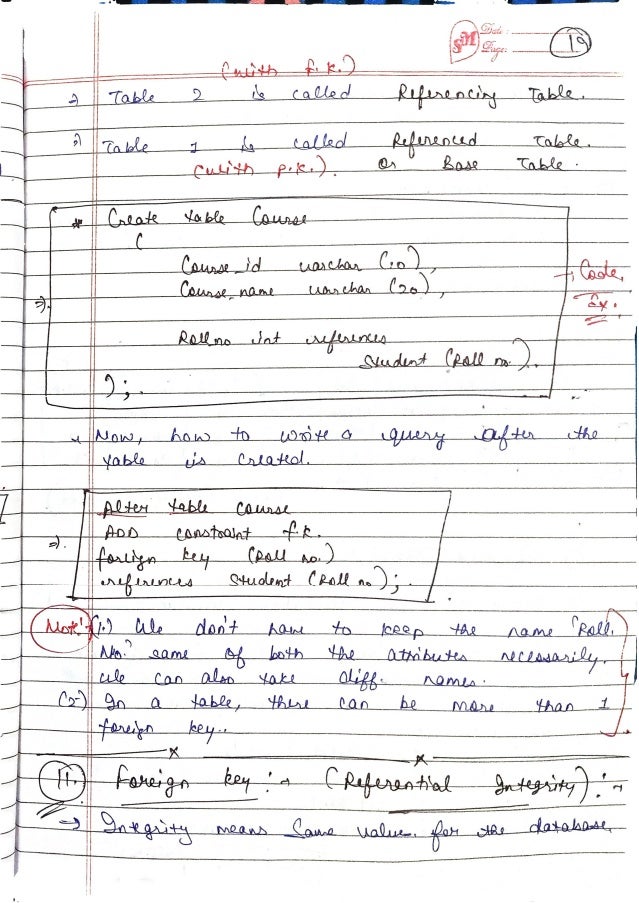 SM Date :
Page:
19
(with f.k.)
⇒ Table 2 is called Referencing Table.
⇒ Table 1 is called Referenced Table.
(with p.k.). or Base Table.
* Create table Course
(
Course_id varchar (10),
Course_name varchar (20),
→ Code
Ex.
⇒.
Roll no int references
Student (Roll no.).
);.
* Now, how to write a query after the
table is created.
Alter table Course
ADD constraint f.k.
⇒.
foreign key (Roll no.)
references Student (Roll no);.
Note:→ (1.) We don't have to keep the name "Roll.
No." same of both the attributes necessarily.
we can also take diff. names.
(2→) In a table, there can be more than 1
foreign key..
x x
11.) Foreign key :→ (Referential Integrity) :→
→ Integrity means Same value for the database